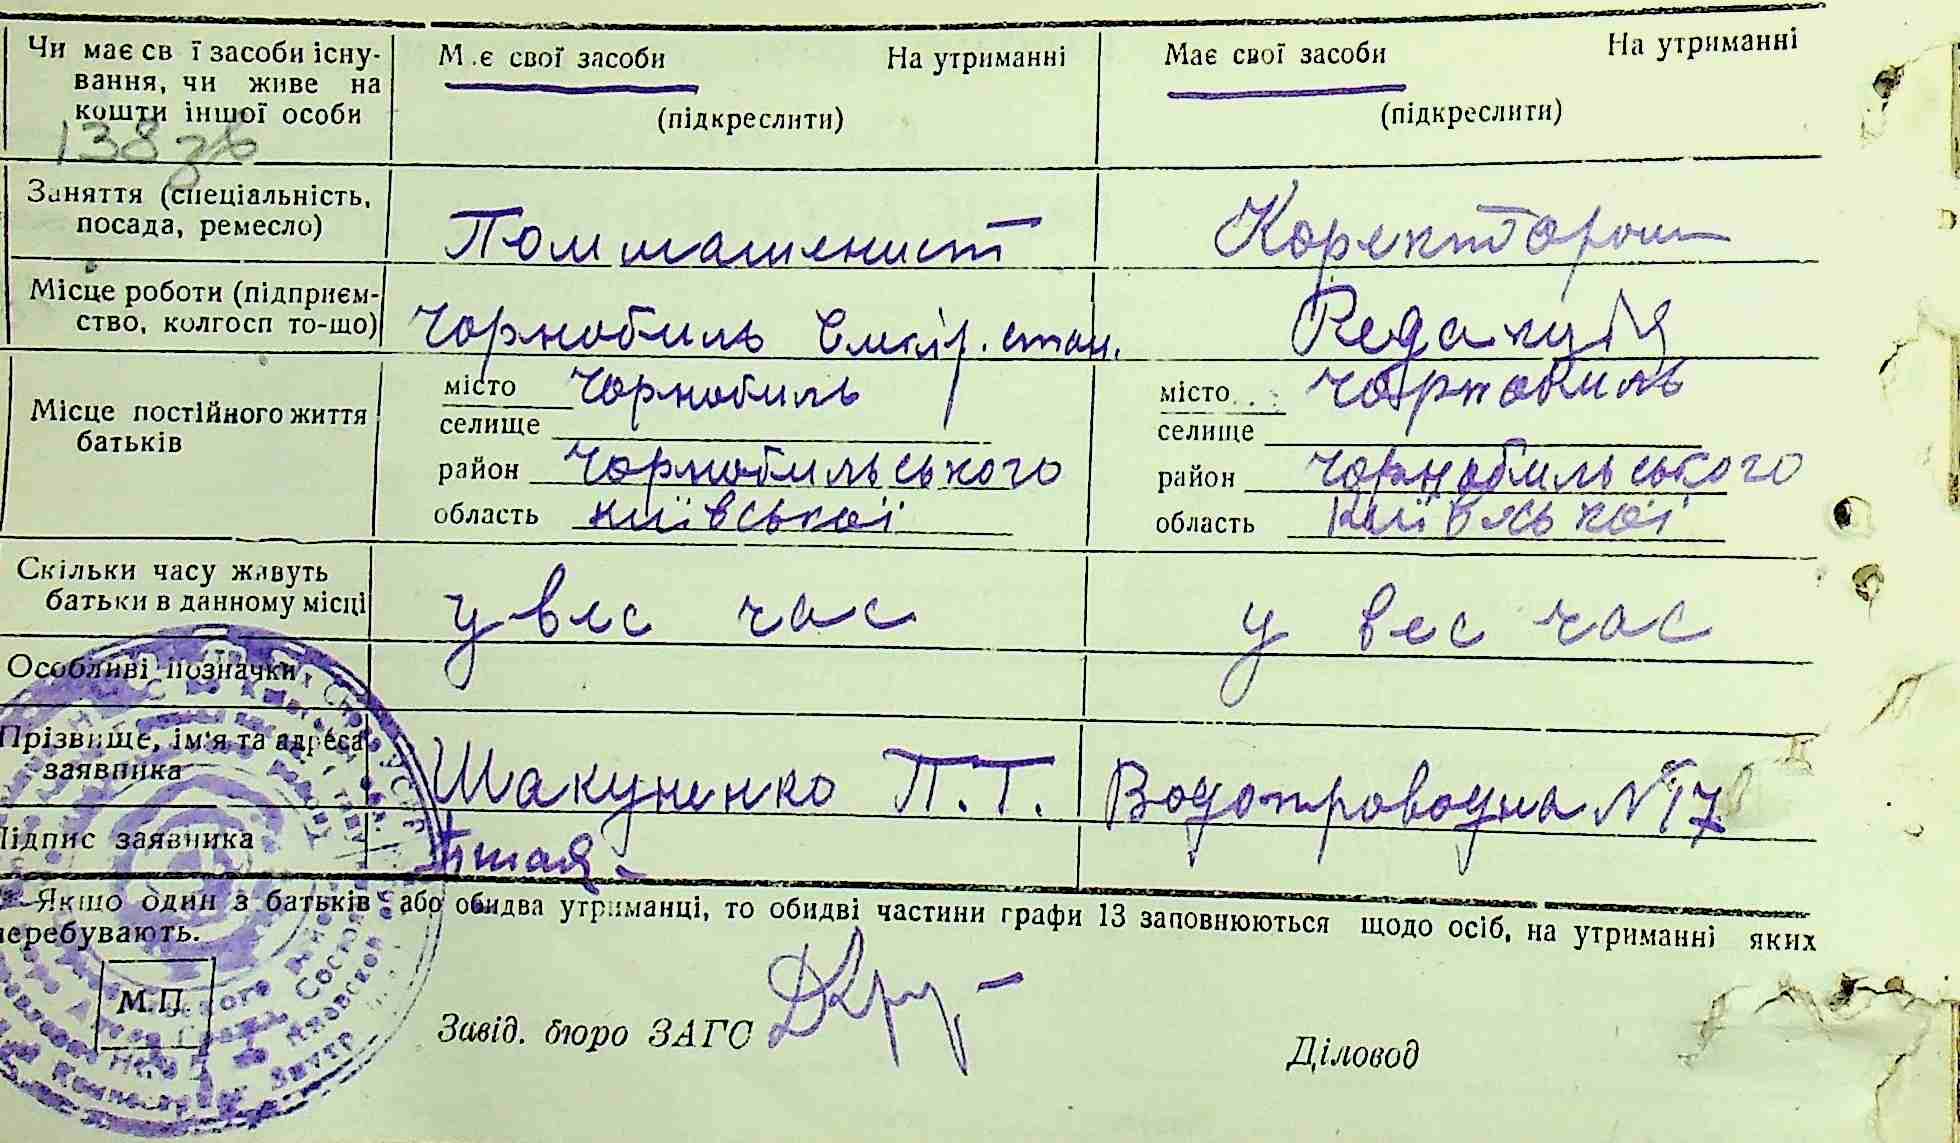 Чи має св ї засоби існу-
вання, чи живе на
кошти іншої особи
138 зв
М.є свої засоби На утриманні
(підкреслити)
Має свої засоби На утриманні
(підкреслити)
Заняття (спеціальність,
посада, ремесло)
Пом машенист
Коректором
Місце роботи (підприєм-
ство, колгосп то-що)
Чорнобиль стан.
Редакція
Місце постійного життя
батьків
місто Чорнобиль
селище
район Чорнобильського
область київської
місто Чорнобиль
селище
район Чорнобильського
область Київської
Скільки часу живуть
батьки в данному місці
у вес час
у вес час
Особливі позначки
Прізвище, ім'я та адреса
заявника
Шакуненко П.Т. Водопроводна №17
Підпис заявника
Якщо один з батьків або обидва утриманці, то обидві частини графи 13 заповнюються щодо осіб, на утриманні яких
перебувають.
М.П.
Завід. бюро ЗАГС
Діловод